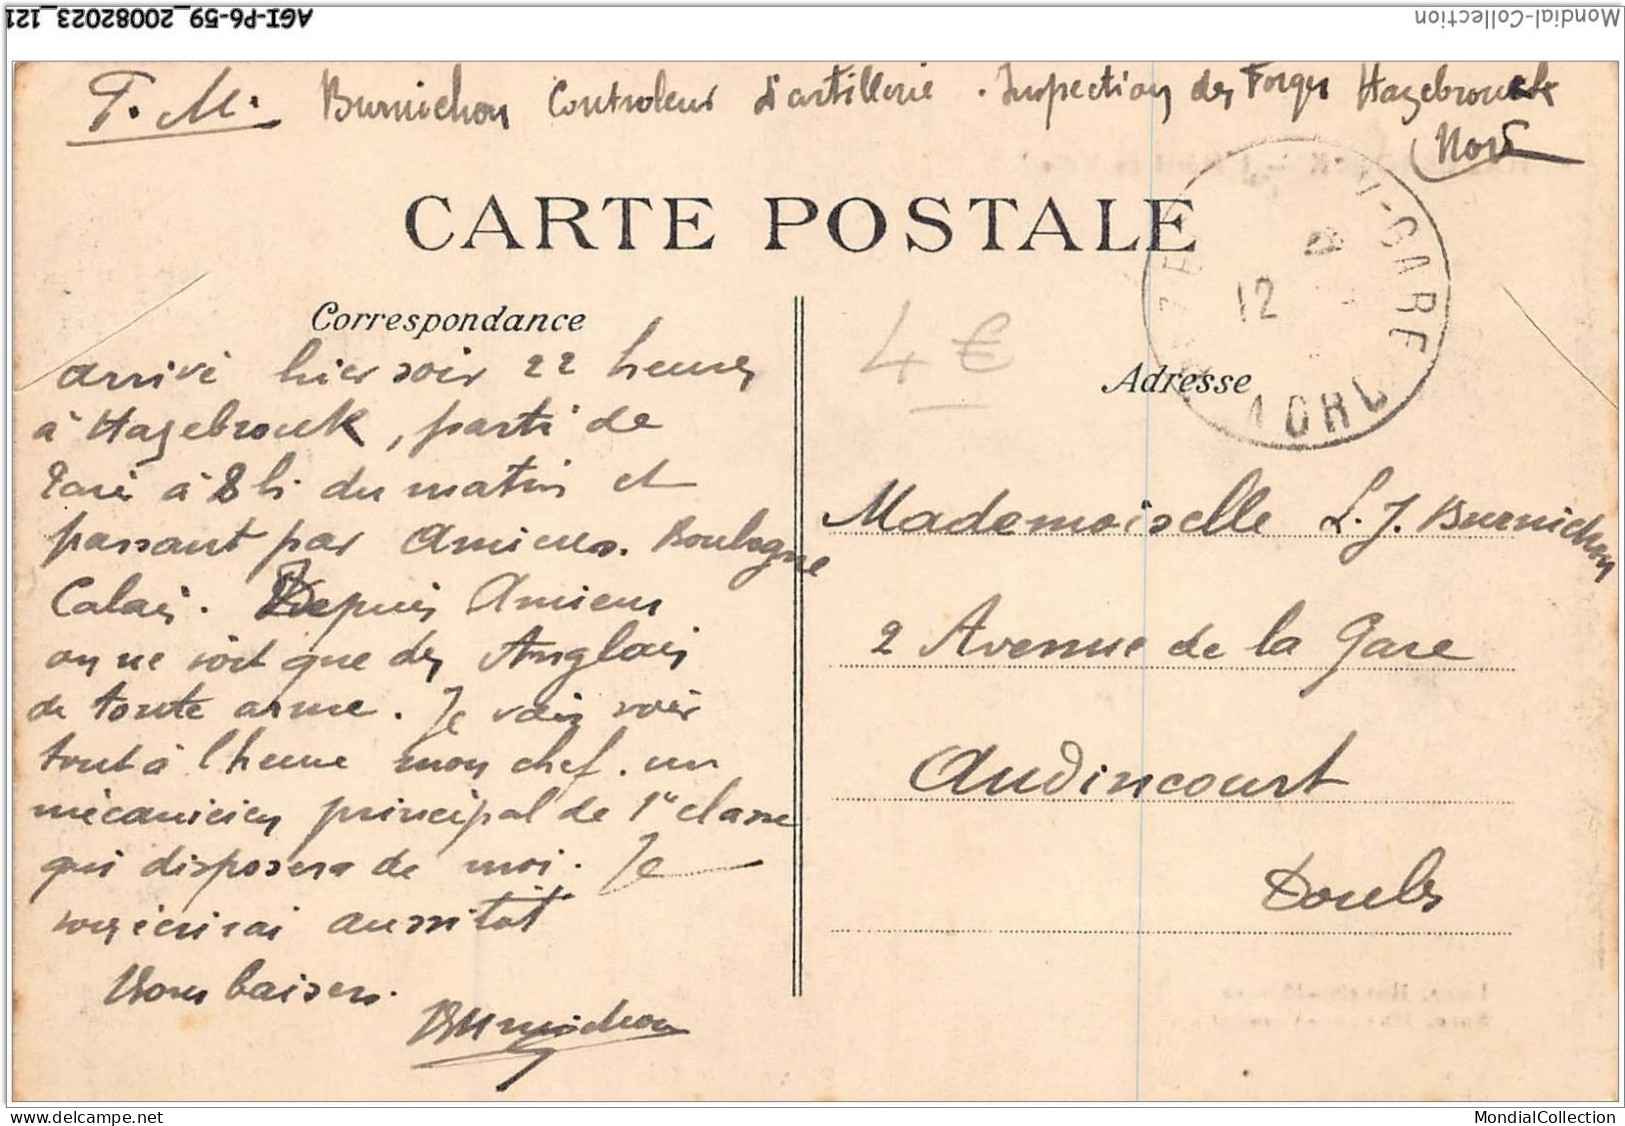 AGI-P6-59_20082023_121
Mondial-Collection
F. M. Burnichon Controleur d'artillerie. Inspection des Forges Hazebrouck
(Nord
CARTE POSTALE
Correspondance
arrivé hier soir 22 heures
à Hazebrouck, parti de
Paris à 8 h. du matin et
passant par Amiens. Boulogne
Calais. Depuis Amiens
on ne voit que des Anglais
de toute arme. Je vais voir
tout à l'heure mon chef. un
mécanicien principal de 1re classe
qui disposera de moi. Je
vous écrirai aussitôt
Bons baisers.
Burnichon
4 €
-GARE
12
NORD
Adresse
Mademoiselle L. J. Burnichon
2 Avenue de la Gare
Audincourt
Doubs
delcampe.net
MondialCollection